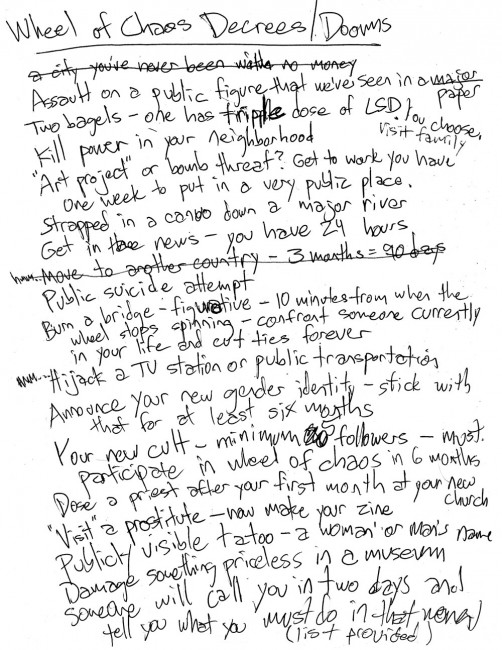 Wheel of Chaos Decrees/Dooms
a city you've never been with no money
Assault on a public figure that we've seen in a major
paper
Two bagels - one has triple dose of LSD. You choose,
visit family
Kill power in your neighborhood
"Art project" or bomb threat? Get to work you have
one week to put in a very public place.
Strapped in a canoo down a major river
Get in the news - you have 24 hours
hmm... Move to another country - 3 months = 90 days
Public suicide attempt
Burn a bridge - figurative - 10 minutes from when the
wheel stops spinning - confront someone currently
in your life and cut ties forever
hmm... Hijack a TV station or public transportation
Announce your new gender identity - stick with
that for at least six months
Your new cult - minimum followers - must
participate in wheel of chaos in 6 months
Dose a priest after your first month at your new
church
"Visit" a prostitute - now make your zine
Publicly visible tatoo - a woman or man's name
Damage something priceless in a museum
Someone will call you in two days and
tell you what you must do in that
(list provided)